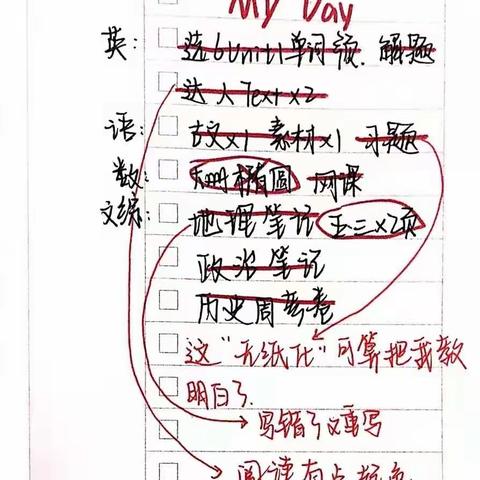 My Day
英: 选6 Unit1 单词 额. 解题
达人 Text x2
语: 古文x1 素材x1 习题
数: 椭圆 网课
文综: 地理笔记 五三x2页
政治笔记
历史周考卷
这"无纸化"可算把我教
明白了.
写错了又重写
阅读有点